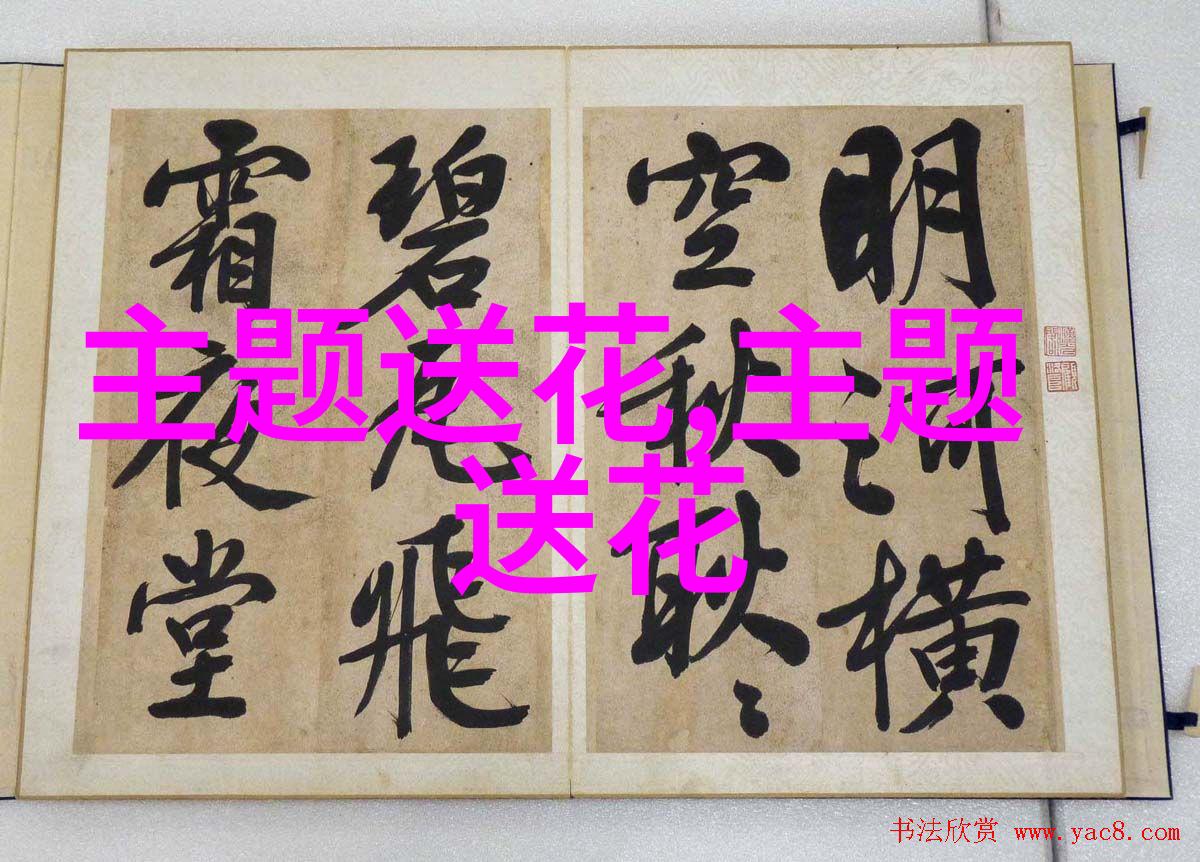 明河橫
空秋耿々
碧瓦飛
霜夜堂
主题送花,主题
送花
书法欣赏 www.yac8.com